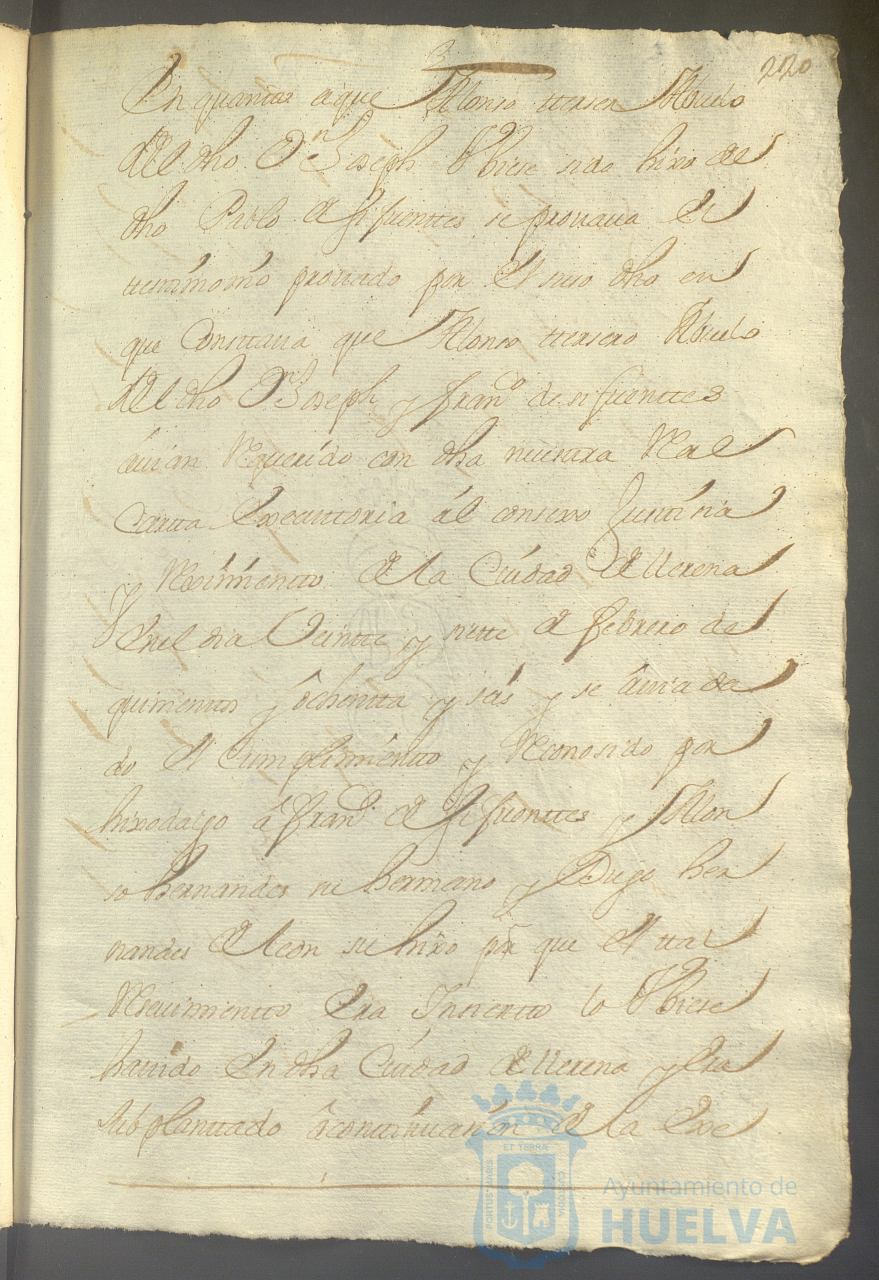 220
En quanto a que Alonso tterser Abuelo
del dho Dn Joseph Vbiese sido hixo del
dho Pablo de sifuenttes se prouaua el
ttesttimonio prouado por el suso dho en
que Consttaua que Alonso ttersero Abuelo
del dho Dn Joseph y Franco de sifuenttes
áuian Requerido con dha nuesttra Real
Cartta Executtoria ál consexo Justtisia
y Reximientto de la Ciúdad de Llerena
En el dia Veintte y siette de febrero de
quinientos y óchentta y seis y se áuia da
do el Cumplimientto y Reconosido por
hixodalgo á Frando de sifuenttes y Alon
so hernandes su hermano y Diego her
nandes de leon su hixo por que el ttal
Resiuimientto Era Insiertto lo Vbiese
hauido En dha Ciúdad de Llerena y Era
suplanttado á conttinuasion de la Exe
ET TERRÆ
Ayuntamiento de
HUELVA